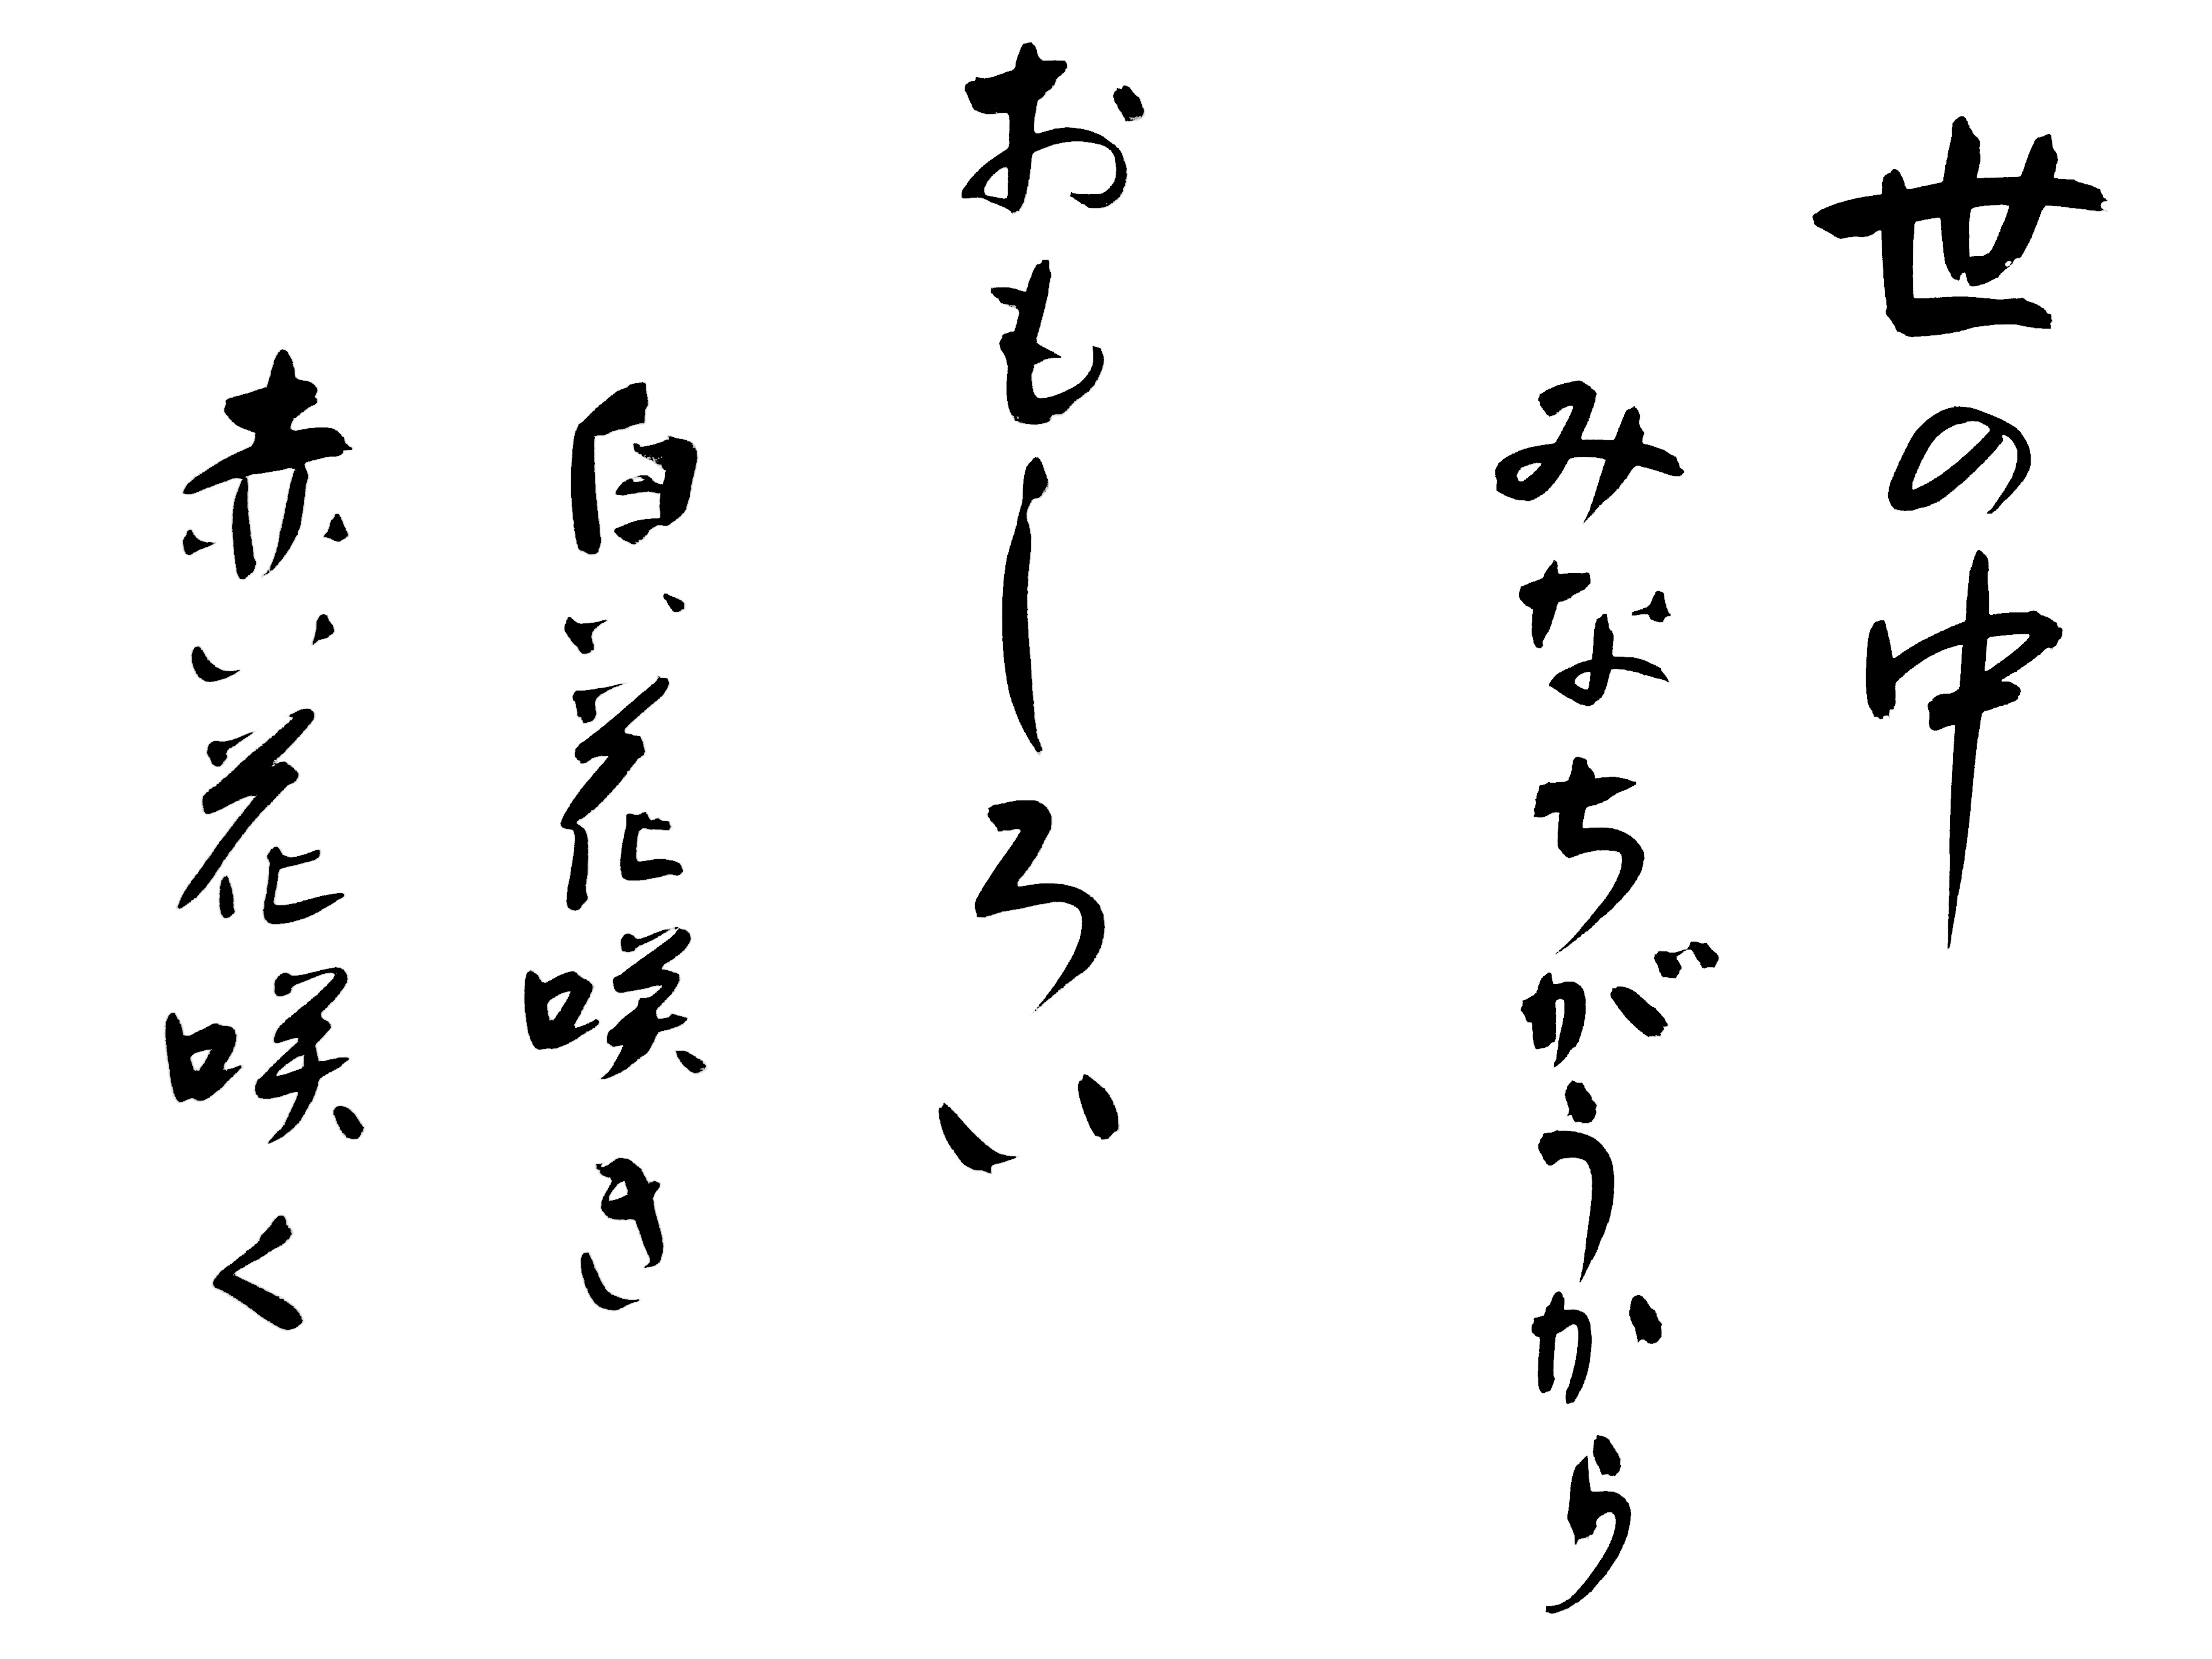 世の中
みなちがうから
おもしろい
白い花咲き
赤い花咲く